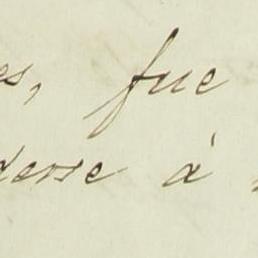 es, fue
derse à